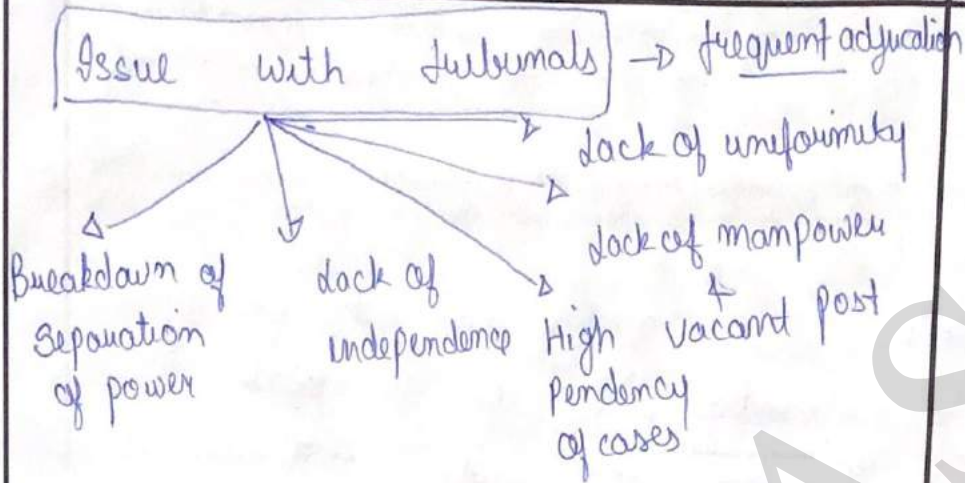 Issue with tribunals → frequent adjucation
Lack of uniformity
Lack of manpower
Breakdown of
separation
of power
Lack of
independence
High
pendency
of cases
& vacant post